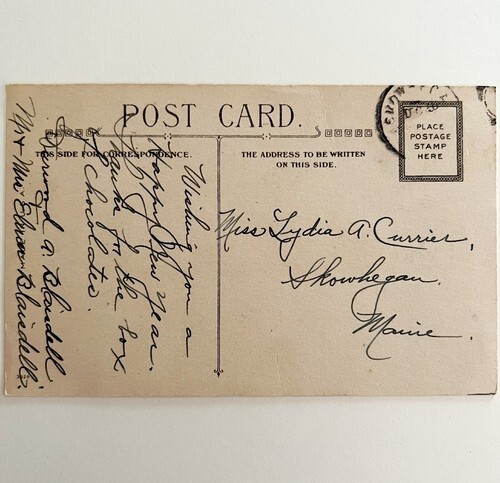 POST CARD.
THIS SIDE FOR CORRESPONDENCE.
THE ADDRESS TO BE WRITTEN
ON THIS SIDE.
PLACE
POSTAGE
STAMP
HERE
Wishing you a
Happy New year.
Thanks for the box
of chocolates.
A. Blaisdell
Mr & Mrs Blaisdell.
Miss Lydia A. Currier,
Skowhegan,
Maine.